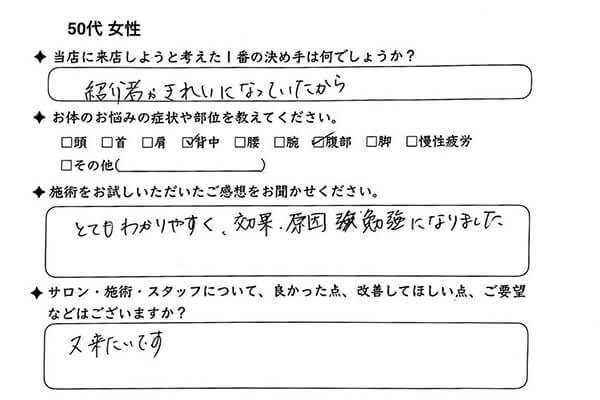 50代 女性
✦当店に来店しようと考えた1番の決め手は何でしょうか？
紹介者がきれいになっていたから
✦お体のお悩みの症状や部位を教えてください。
□頭 □首 □肩 ☑背中 □腰 □腕 ☑腹部 □脚 □慢性疲労
□その他( )
✦施術をお試しいただいたご感想をお聞かせください。
とてもわかりやすく、効果・原因 勉強になりました
✦サロン・施術・スタッフについて、良かった点、改善してほしい点、ご要望
などはございますか？
又来たいです